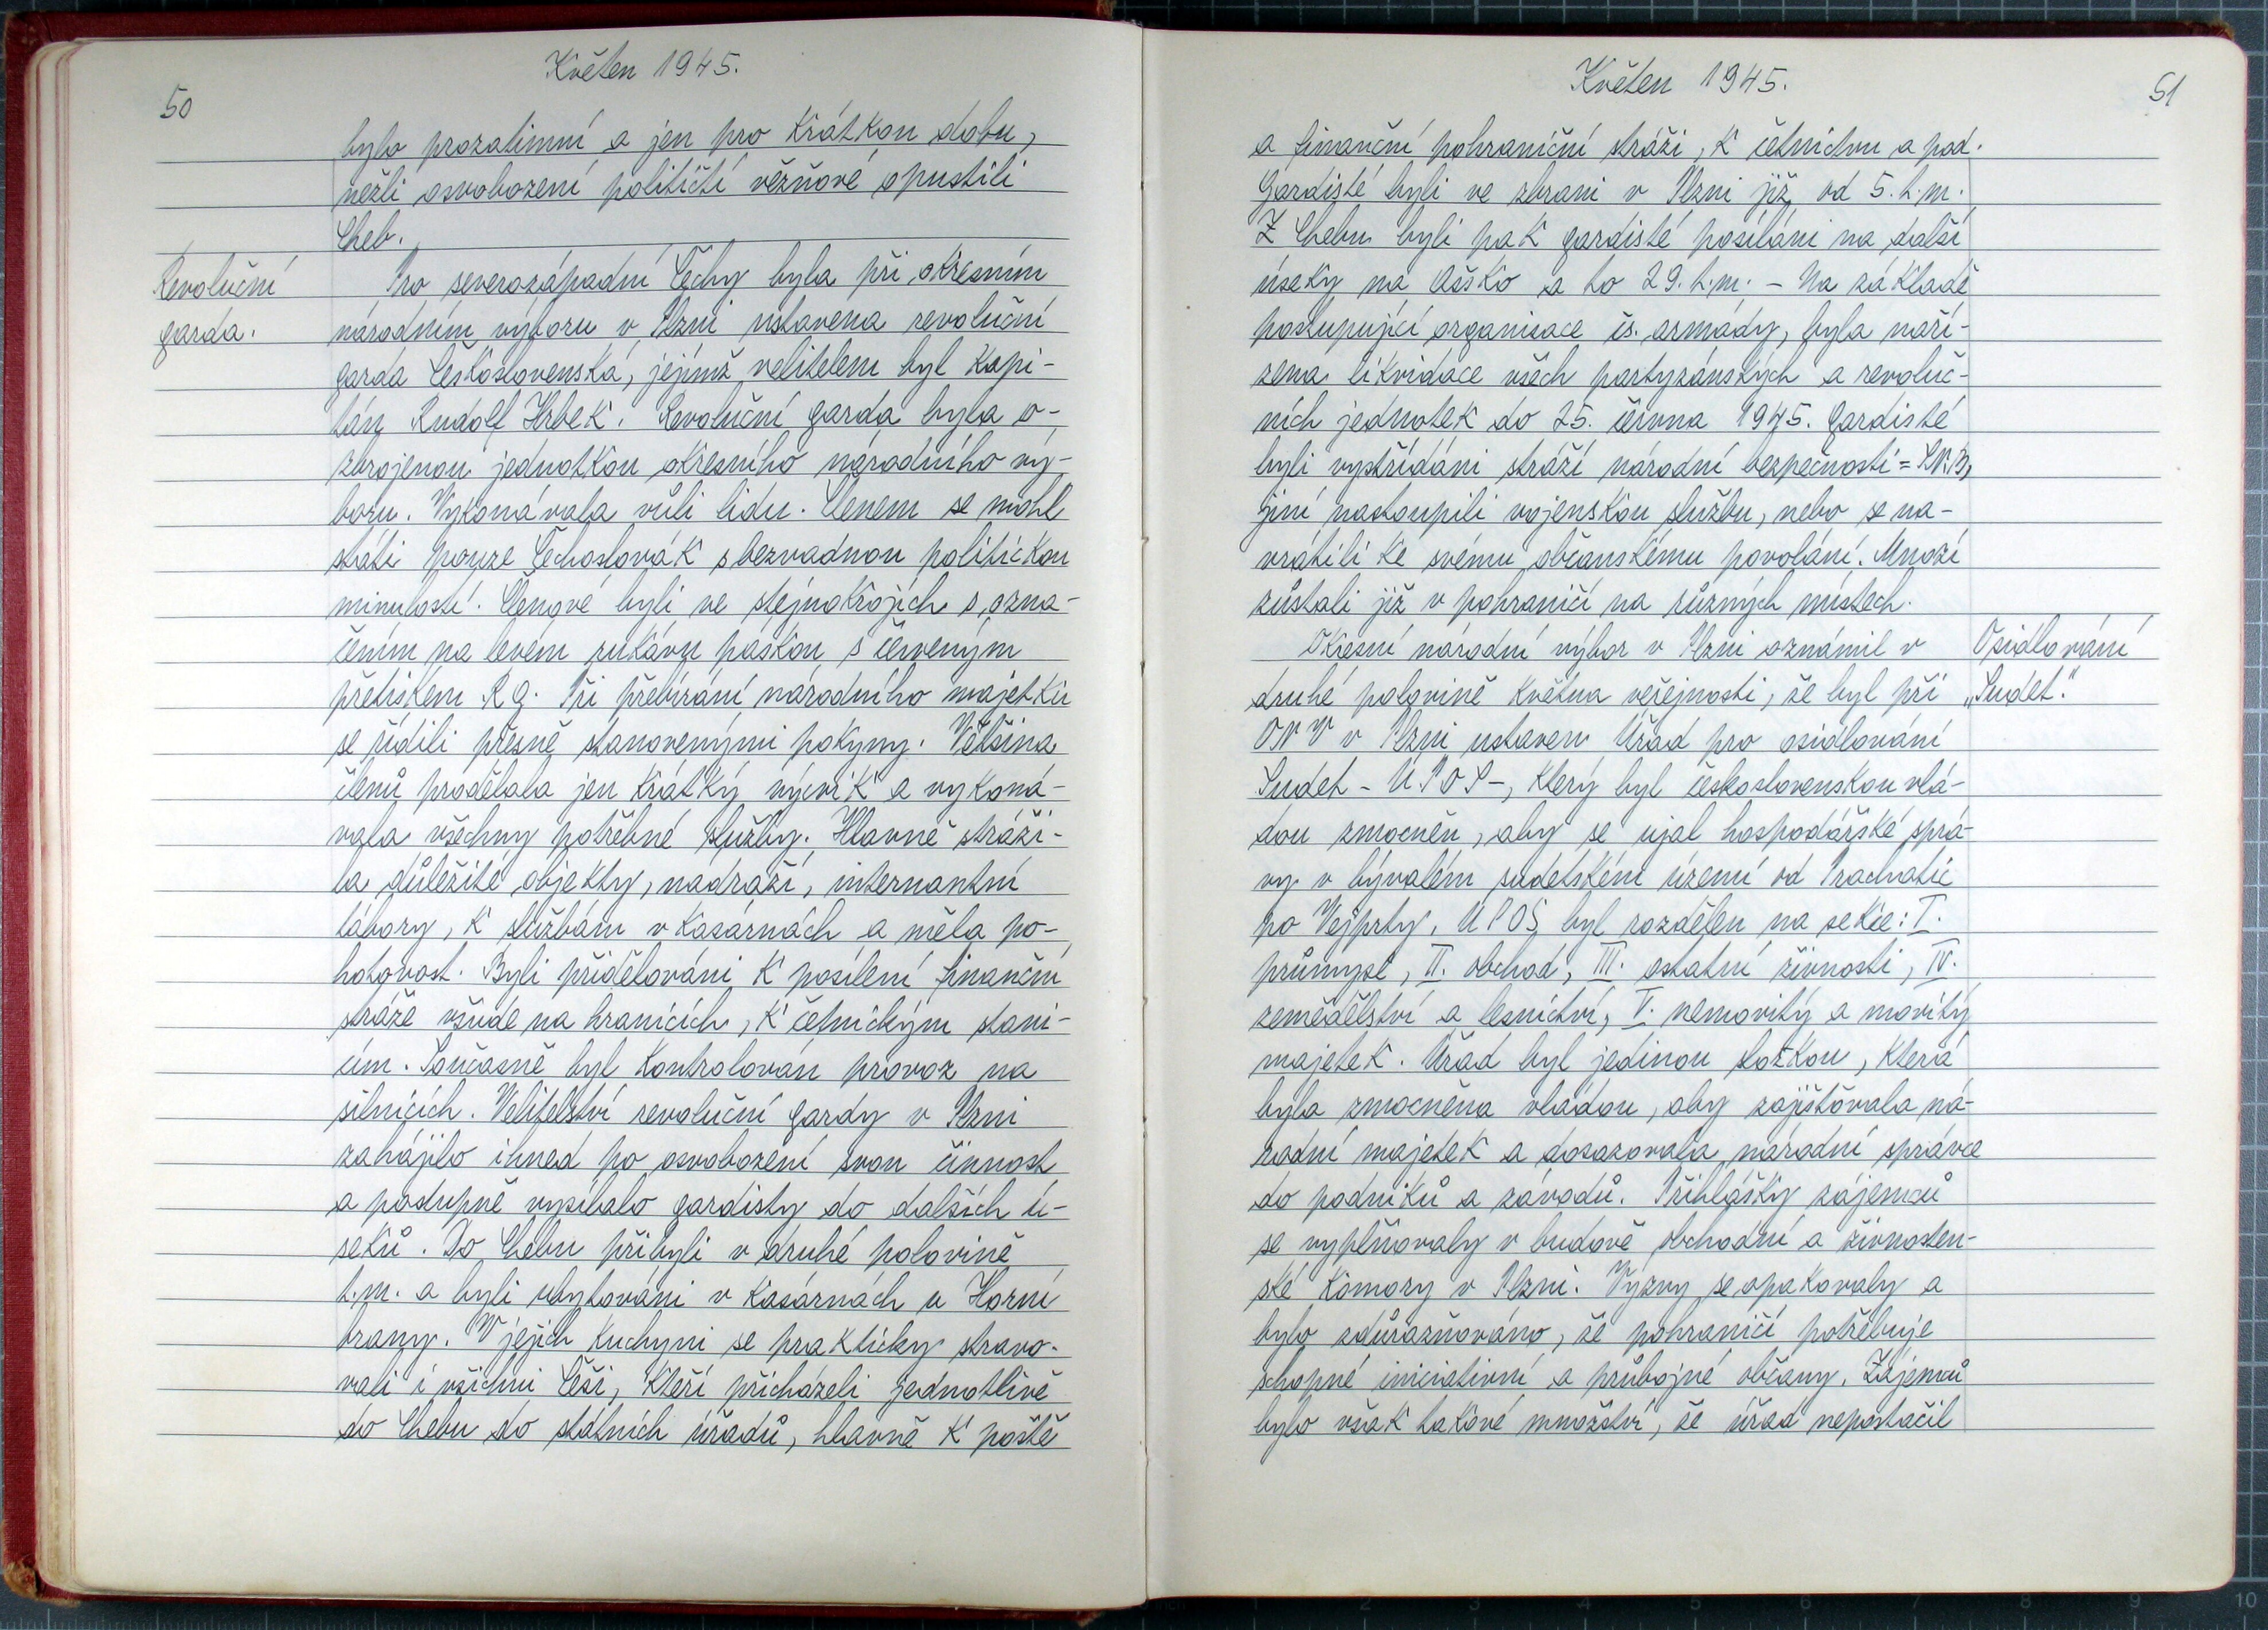 Květen 1945.
50
bylo prozatimní a jen pro krátkou dobu,
nežli osvobození političtí věžňové opustili
Cheb.
Revoluční
garda.
Pro severozápadní Čechy byla při okresním
národním výboru v Plzni ustavena revoluční
garda Československá, jejímž velitelem byl kapi-
tán Rudolf Hrbek. Revoluční garda byla o-
zbrojenou jednotkou okresního národního vý-
boru. Vykonávala vůli lidu. Členem se mohl
státi pouze Čechoslovák s bezvadnou politickou
minulostí. Členové byli ve stejnokrojích s ozna-
čením na levém rukávu páskou s červeným
přetiskem R G. Při přebírání národního majetku
se řídili přesně stanovenými pokyny. Většina
členů prodělala jen krátký výcvik a vykoná-
vala všechny potřebné služby. Hlavně stráži-
la důležité objekty, nadraží, internantní
tábory, k službám v kasárnách a měla po-
hotovost. Byli přidělováni k posílení finanční
stráže všude na hranicích, k četnickým stani-
cím. Současně byl kontrolován provoz na
silnicích. Velitelství revoluční gardy v Plzni
zahájilo ihned po osvobození svou činnost
a postupně vysílalo gardisty do dalších ú-
seků. Do Chebu přibyli v druhé polovině
t.m. a byli ubytováni v kasárnách u Horní
brany. V jejich kuchyni se prakticky stravo-
vali i všichni Češi, kteří přicházeli jednotlivě
do Chebu do státních úřadů, hlavně k poště
Květen 1945.
51
a finanční pohraniční stráži, k četnictvu a pod.
Gardisté byli ve zbrani v Plzni již od 5. t.m.
Z Chebu byli pak gardisté posíláni na další
úseky na Ašsko a to 29. t.m. - Na základě
postupující organisace čs. armády, byla naří-
zena likvidace všech partyzánských a revoluč-
ních jednotek do 25. června 1945. Gardisté
byli vystřídáni stráží národní bezpečnosti = SNB,
jiní nastoupili vojenskou službu, nebo se na-
vrátili ke svému občanskému povolání. Mnozí
zůstali již v pohraničí na různých místech.
Okresní národní výbor v Plzni oznámil v
druhé polovině května veřejnosti, že byl při
Osidlování
„Sudet."
ONV v Plzni ustaven Úřad pro osidlování
Sudet - ÚPOS -, který byl československou vlá-
dou zmocněn, aby se ujal hospodářské sprá-
vy v bývalém sudetském území od Prachatic
po Vejprty. ÚPOS byl rozdělen na sekce: I.
průmysl, II. obchod, III. ostatní živnosti, IV.
zemědělství a lesnictví, V. nemovitý a movitý
majetek. Úřad byl jedinou složkou, která
byla zmocněna vládou, aby zajišťovala ná-
rodní majetek a dosazovala národní správce
do podniků a závodů. Přihlášky zájemců
se vyplňovaly v budově obchodní a živnosten-
ské komory v Plzni. Výzvy se opakovaly a
bylo zdůrazňováno, že pohraničí potřebuje
schopné iniciativní a průbojné občany. Zájemců
bylo však takové množství, že úřad nepostačil